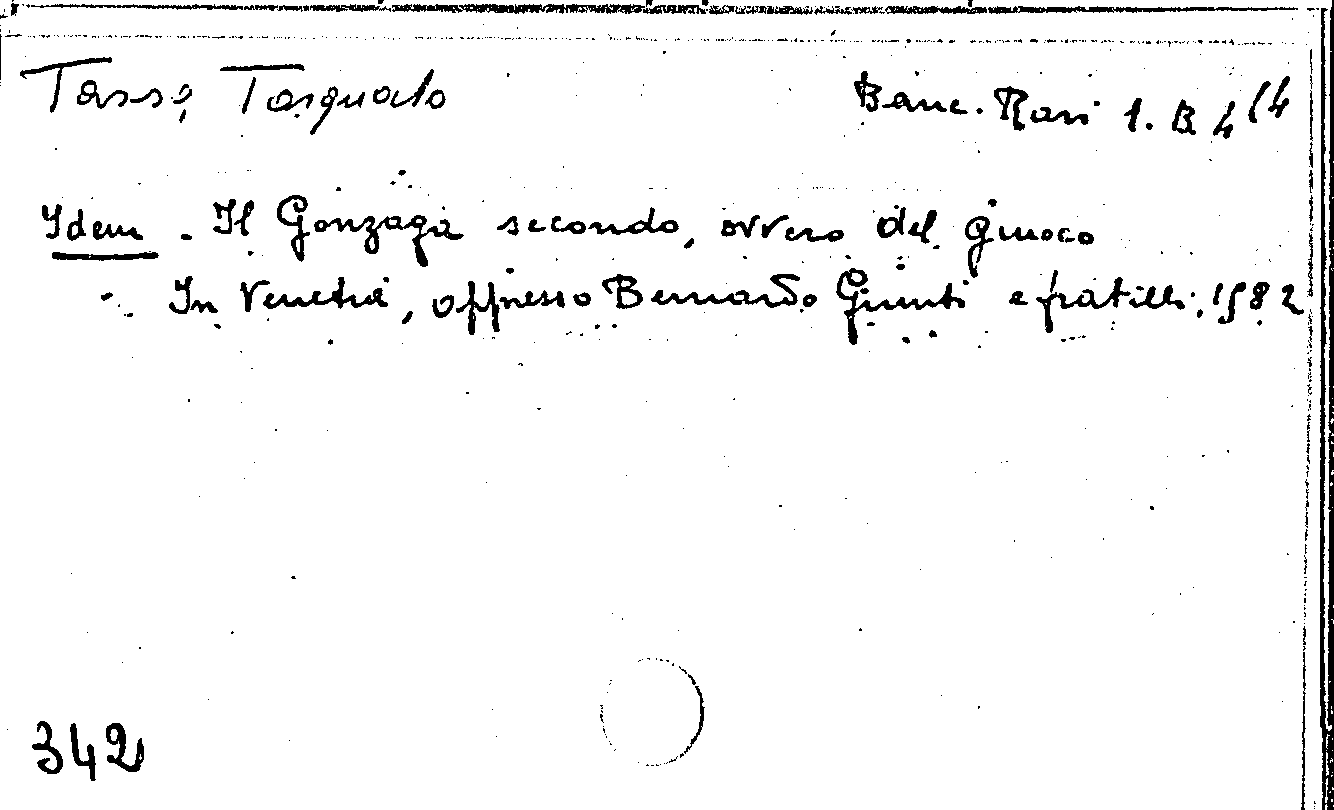 Tasso, Torquato Banc. Rari 1. B 4 14
Idem . Il Gonzaga secondo, ovvero del giuoco
. In Venetia, appresso Bernardo Giunti e fratelli, 1582
342